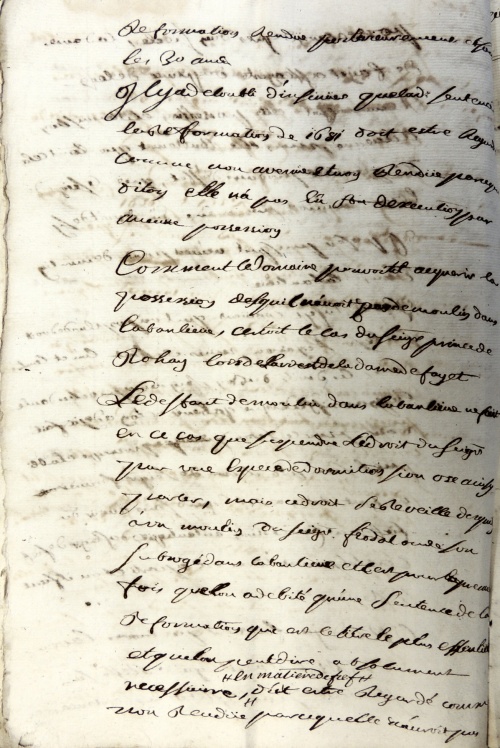 Reformation Rendue posterieurement
les 30 ans
Il y a de doubte d'insinuer que ladt sentence
de la Reformation de 1681 doit estre Regard
comme non avenue et non Rendüe parce
qu'elle n'a pas eu son execution par
aucune possession
Comment le domaine pouroit il acquerir la
possession des qu'il n'avoit pas de moulin dans
la banlieue, cestoit le cas du seigr prince de
Rohan lors de la vente de la dame de fayot
Le deffaut de moulin dans la banlieue ne fait
en ce cas que suspendre le droit du seigr
par une Espece de dormition sion ose ainsy
parler, mais ce droit se reveille des qu'il
a un moulin du seigr feodal ou de son
subrogé dans la banlieue et c'est pour la premiere
fois que lon a debité qu'une sentence de la
Reformation qui est le titre le plus essentiel
et que lon peut dire absolument
++ en matiere de fief ++
necessaire, doit estre Regardé comme
non Rendüe parce quelle n'auroit pas